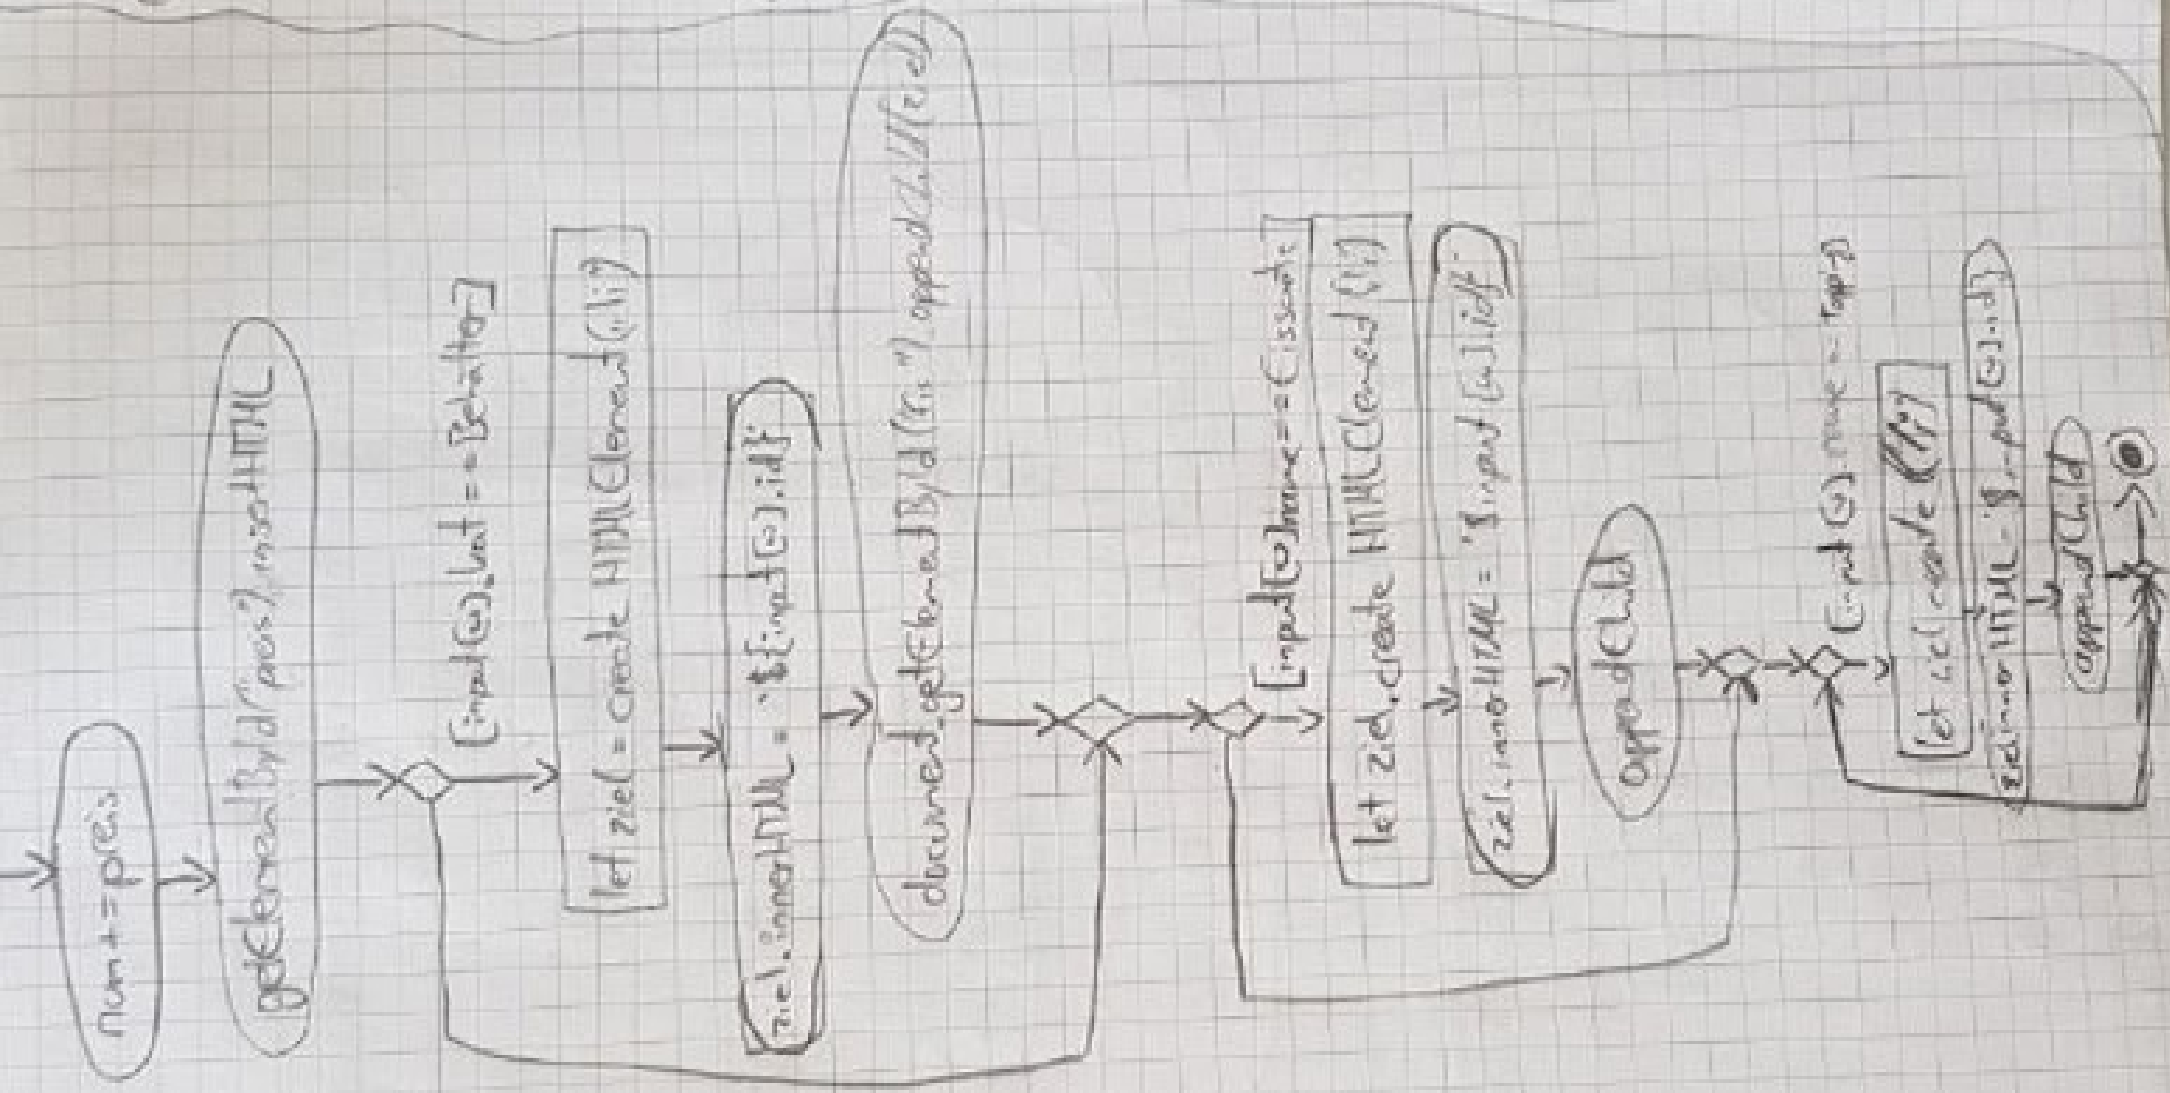 num += preis
getElementById("preis").innerHTML
[input[u].
== Behälter]
let ziel = create HTMLElement (li)
ziel.innerHTML = `${input[u].id}`
document.getElementById("
").appendChild(ziel)
[input[u].name ==
let ziel.create HTMLElement (li)
ziel.innerHTML = `$input[u].id}`
appendChild
[input[u].name ==
let ziel create (li)
ziel.innerHTML = `$input[u].id}
appendChild